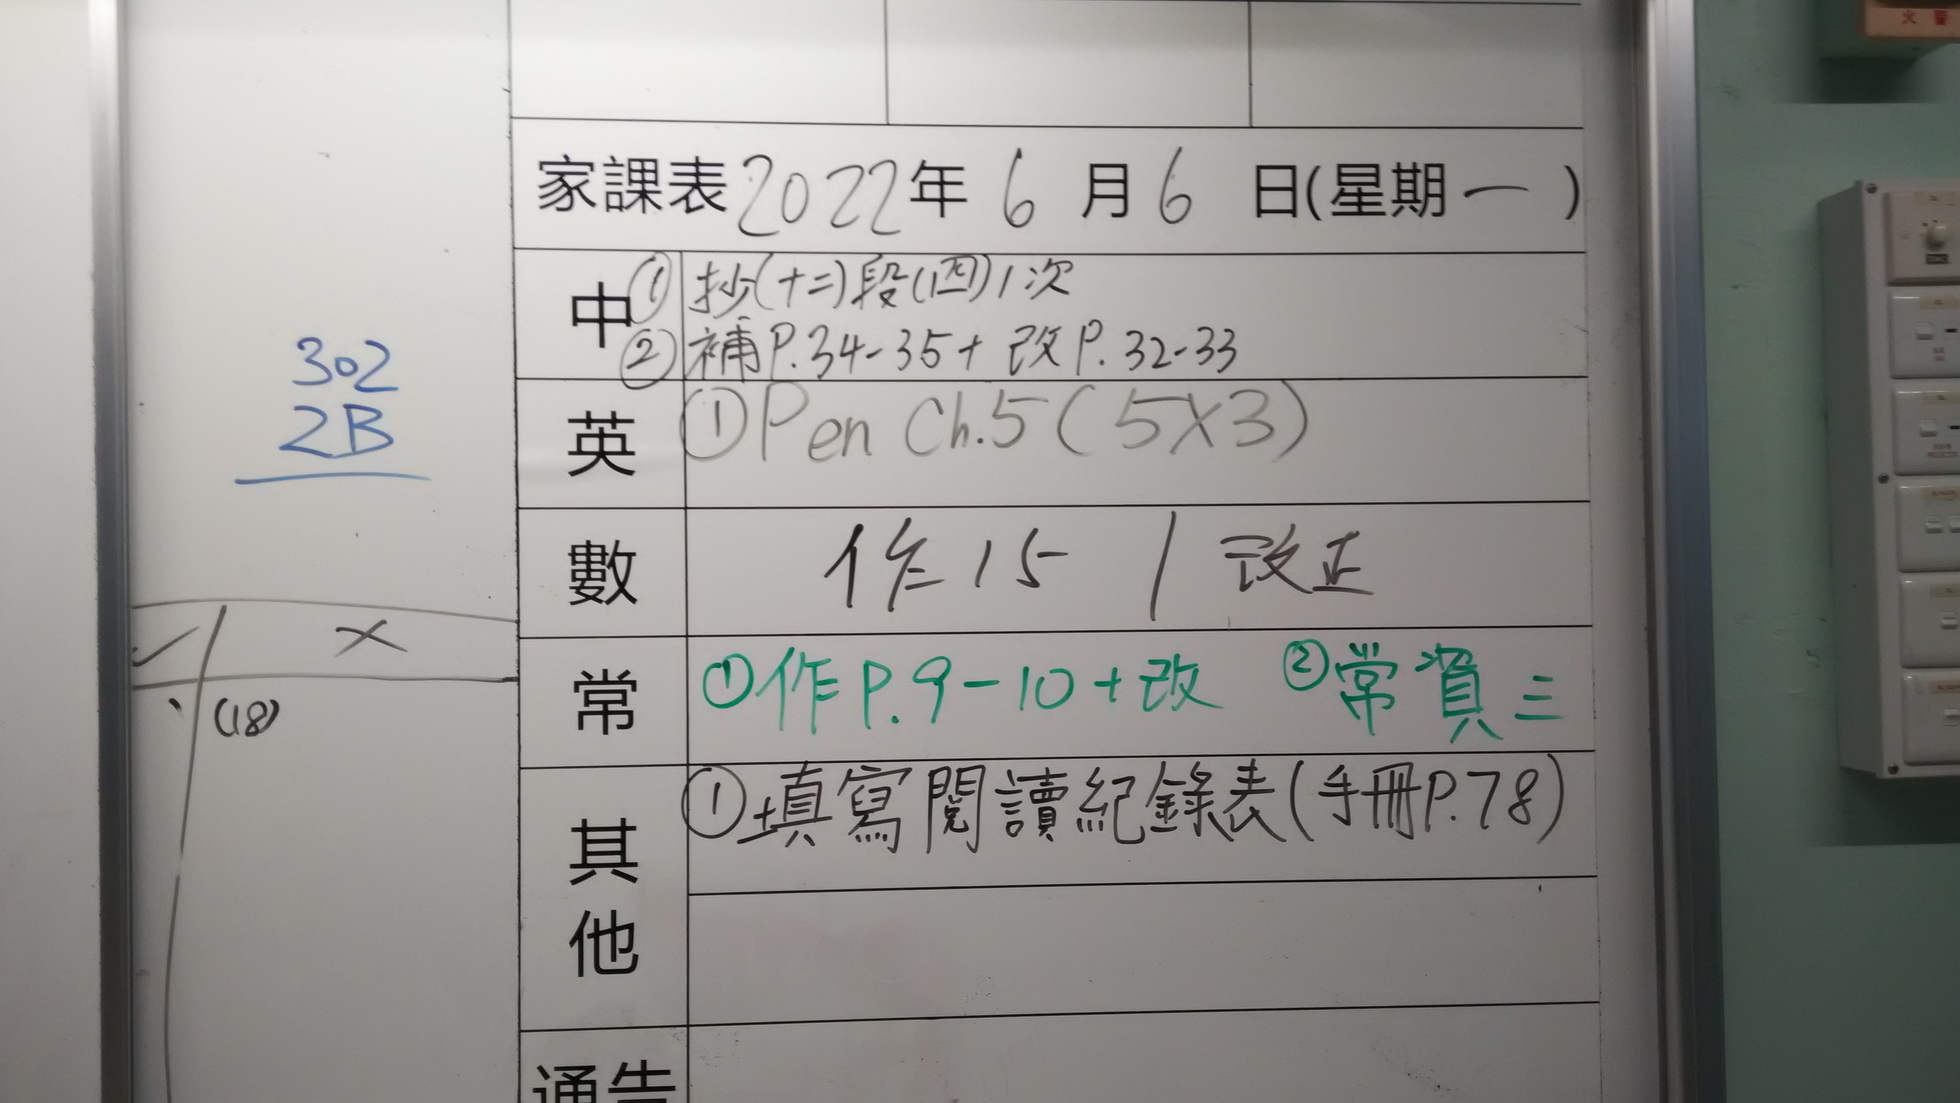 火警
302
2B
✓ ×
(18)
家課表2022年6月6日(星期一)
中
①抄(十二)段(四)1次
②補P.34-35+改P.32-33
英 ①Pen Ch.5(5×3)
數 作15 / 改正
常 ①作P.9-10+改 ②常資三
其他 ①填寫閱讀紀錄表(手冊P.78)
通告